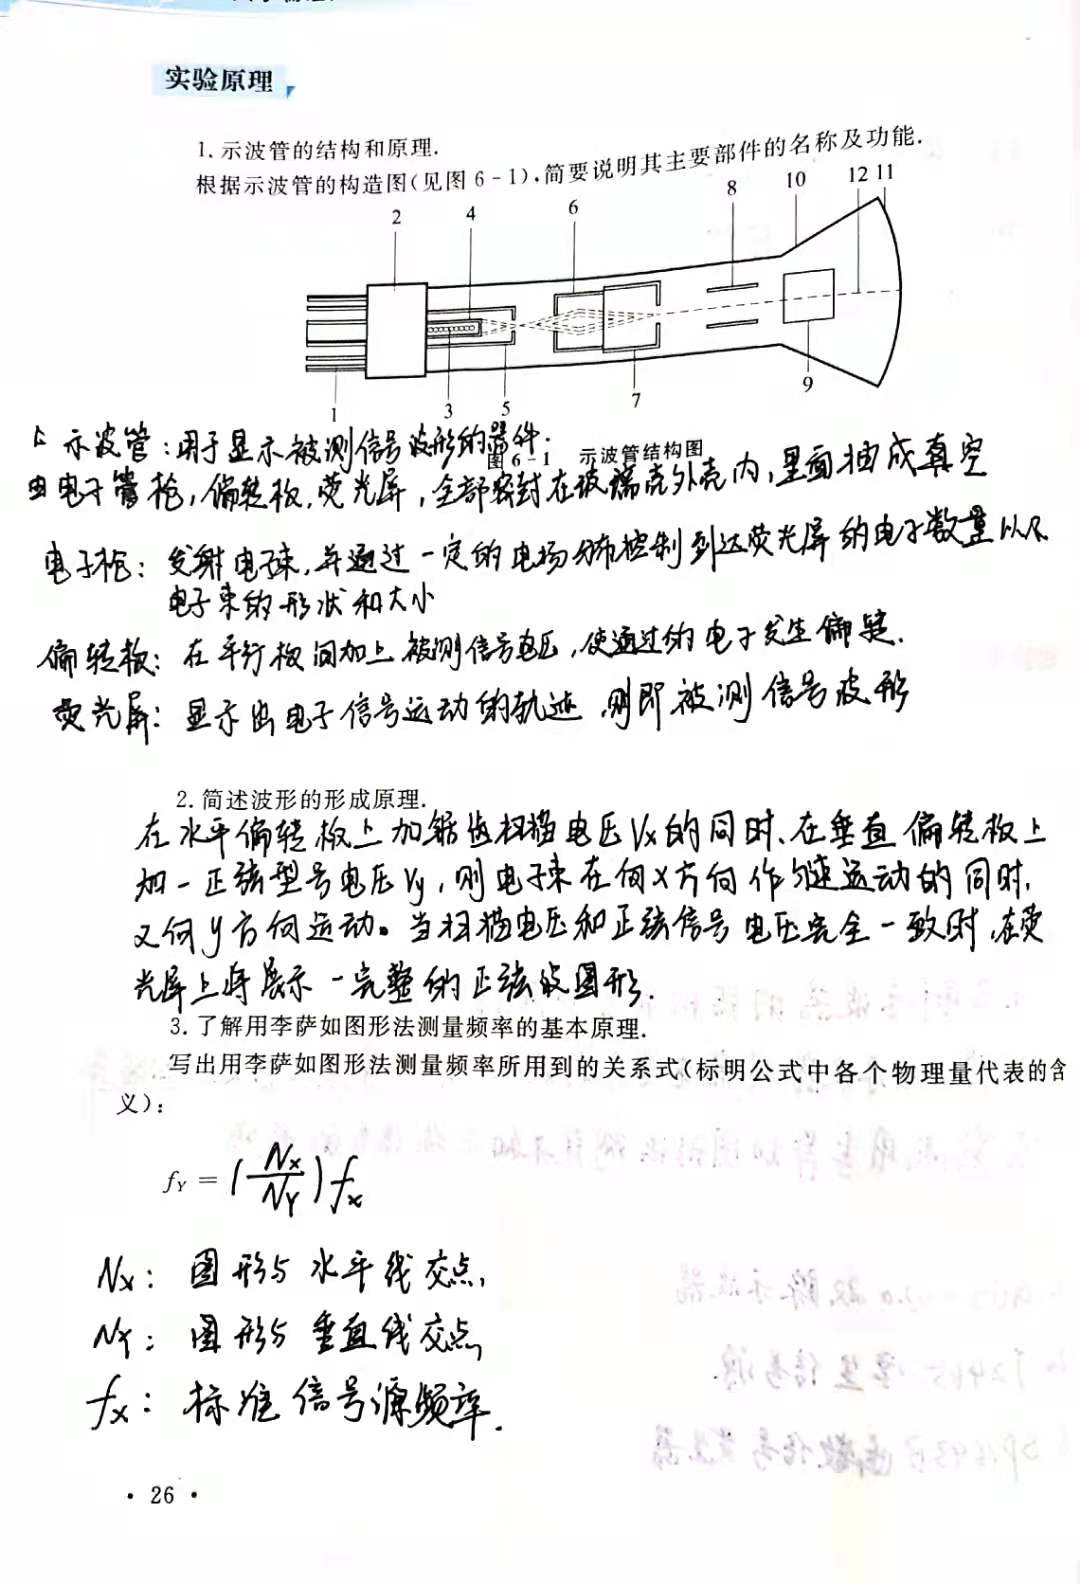 实验原理
1. 示波管的结构和原理.
根据示波管的构造图(见图 6-1),简要说明其主要部件的名称及功能.
2 4 6 8 10 12 11
1 3 5 7 9
图 6-1 示波管结构图
示波管:用于显示被测信号波形的器件.
由电子管枪,偏转板,荧光屏,全部密封在玻璃壳外壳内,里面抽成真空
电子枪:发射电子束,并通过一定的电场分布控制到达荧光屏的电子数量以及
电子束的形状和大小
偏转板:在平行板间加上被测信号电压,使通过的电子发生偏转.
荧光屏:显示出电子信号运动的轨迹,则即被测信号波形
2. 简述波形的形成原理.
在水平偏转板上加锯齿扫描电压Vx的同时、在垂直偏转板上
加一正弦型号电压Vy,则电子束在向X方向作匀速运动的同时,
又向y方向运动。当扫描电压和正弦信号电压完全一致时,在荧
光屏上将展示一完整的正弦波图形.
3. 了解用李萨如图形法测量频率的基本原理.
写出用李萨如图形法测量频率所用到的关系式(标明公式中各个物理量代表的含
义):
fY = (Nx/NY)fx
Nx: 图形与水平线交点,
NY: 图形与垂直线交点,
fx: 标准信号源频率.
· 26 ·